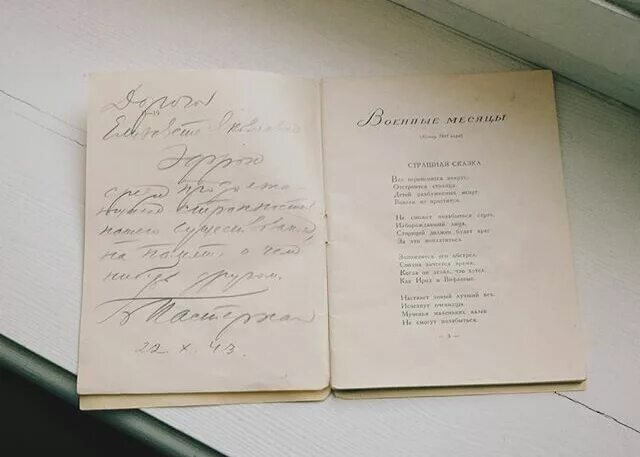 Дорогой
Елизавете Яковлевне
Эфрон
среди продолжа-
ющейся странности
нашего существования,
на память о чем
нибудь другом.
Б Пастернак
22. X. 43
Военные месяцы
(Конец 1941 года)
СТРАШНАЯ СКАЗКА
Все переменится вокруг.
Отстроится столица.
Детей разбуженных испуг
Вовеки не простится.
Не сможет позабыться страх,
Изборождавший лица.
Сторицей должен будет враг
За это поплатиться.
Запомнится его обстрел.
Сполна зачтется время,
Когда он делал, что хотел,
Как Ирод в Вифлееме.
Настанет новый лучший век.
Исчезнут очевидцы.
Мученья маленьких калек
Не смогут позабыться.
— 3 —